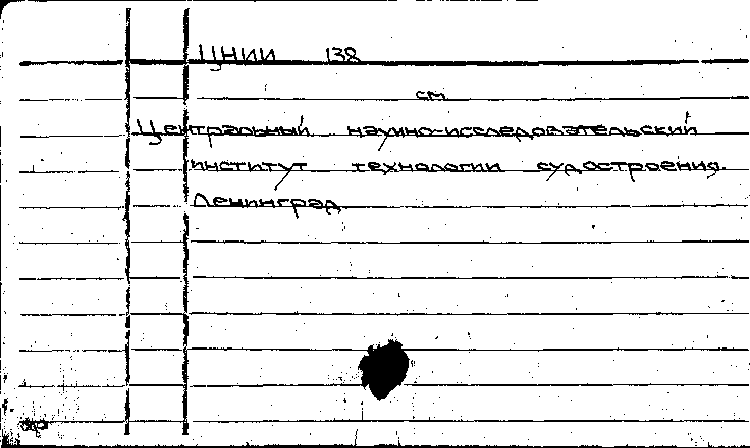 ЦНИИ 138
см
Центральный научно-исследовательский
институт технологии судостроения.
Ленинград